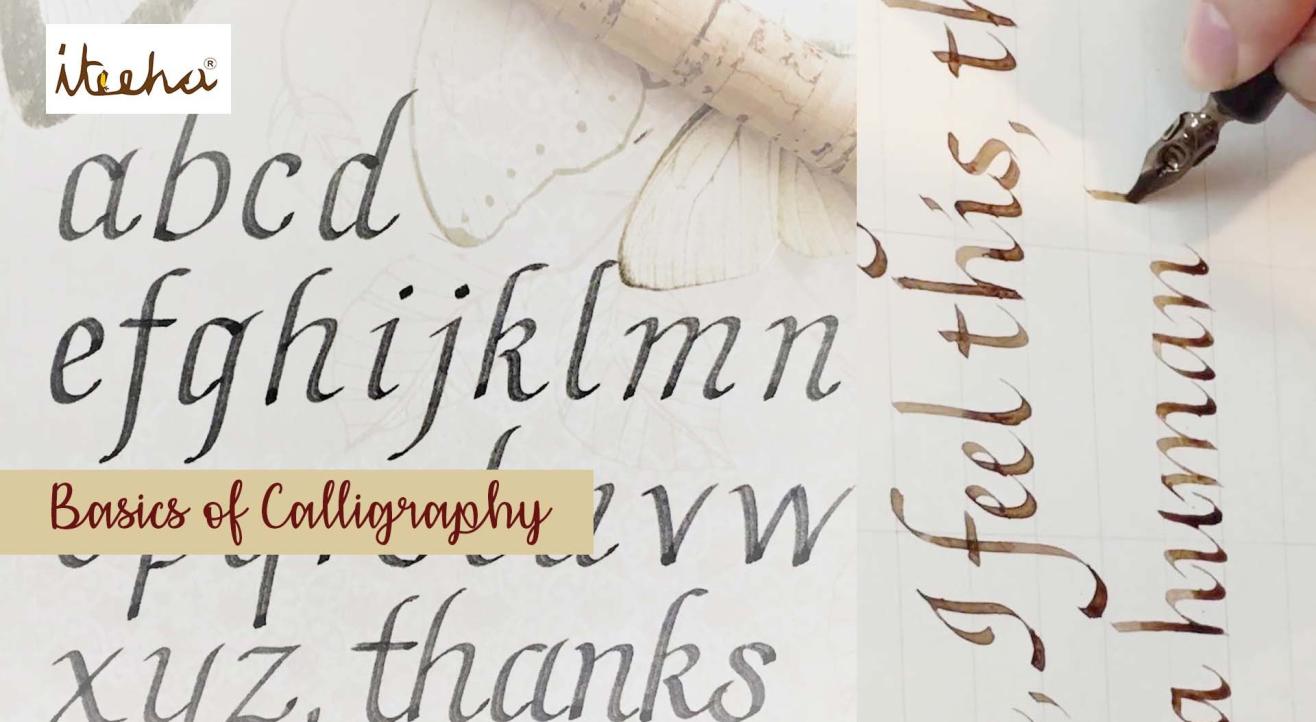 iteeha®
abcd
efghijklmn
vw
Basics of Calligraphy
xyz, thanks
I feel this, th
a human